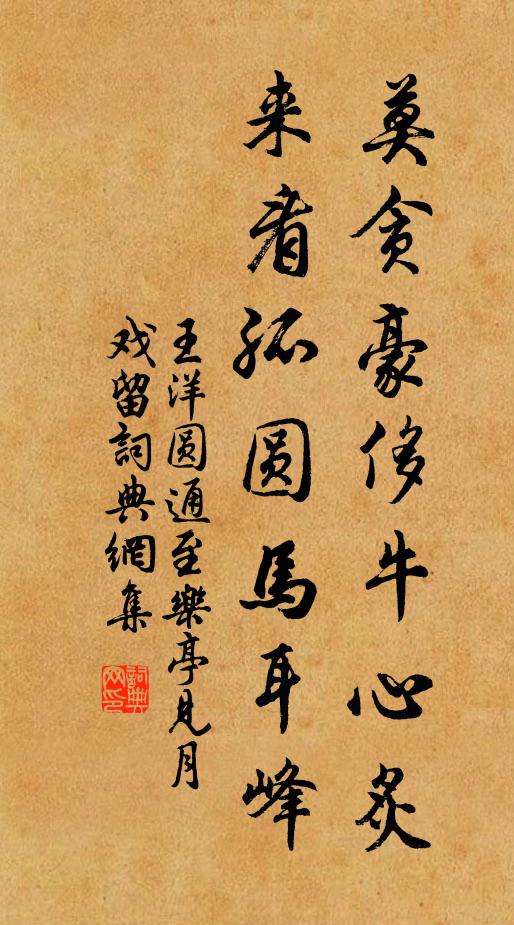 莫貪豪侈牛心炙
来看孤圆馬耳峰
王洋圆通至樂亭見月
戏留詞典網集
詞典网印